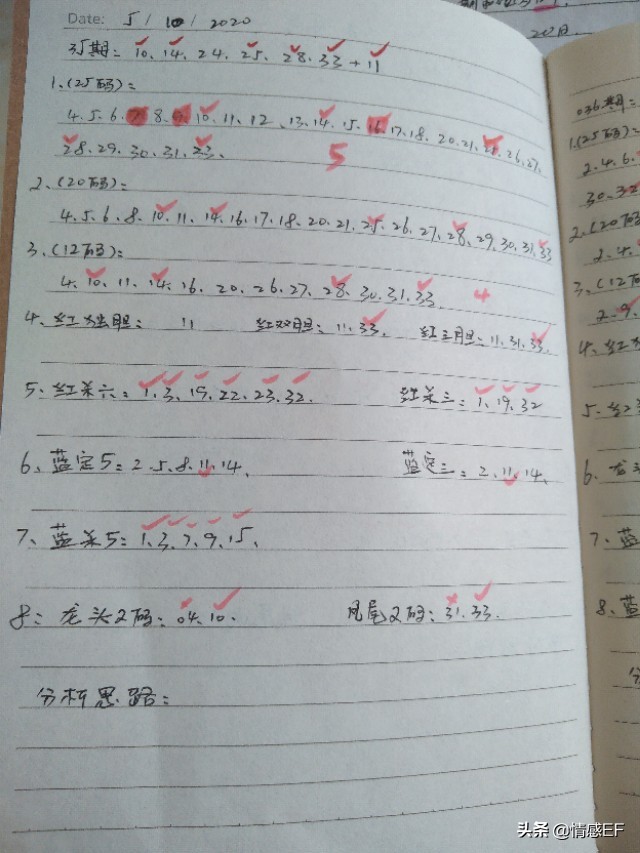 Date: 5 / 10 / 2020
35期: 10、14、24、25、28、33+11
1、(25码):
4、5、6、7、8、9、10、11、12、13、14、15、16、17、18、20、21、25、26、27、
28、29、30、31、33、
5
2、(20码):
4、5、6、8、10、11、14、16、17、18、20、21、25、26、27、28、29、30、31、33
3、(12码):
4、10、11、14、16、20、26、27、28、30、31、33、 4
4、红独胆: 11 红双胆: 11、33、 红三胆: 11、31、33、
5、红杀六: 1、3、19、22、23、32、 红杀三: 1、19、32
6、蓝定5: 2、5、8、11、14、 蓝定三: 2、11、14、
7、蓝杀5: 1、3、7、9、15、
8: 龙头2码: 04、10、 凤尾2码: 31、33、
分析思路:
20日
036期:
1、(25码):
2、4、6、
30、32
2、(20码
2、4、
3、(12码
2、9、
4、红
5、红
6、
7、蓝
8、蓝
头条 @情感EF